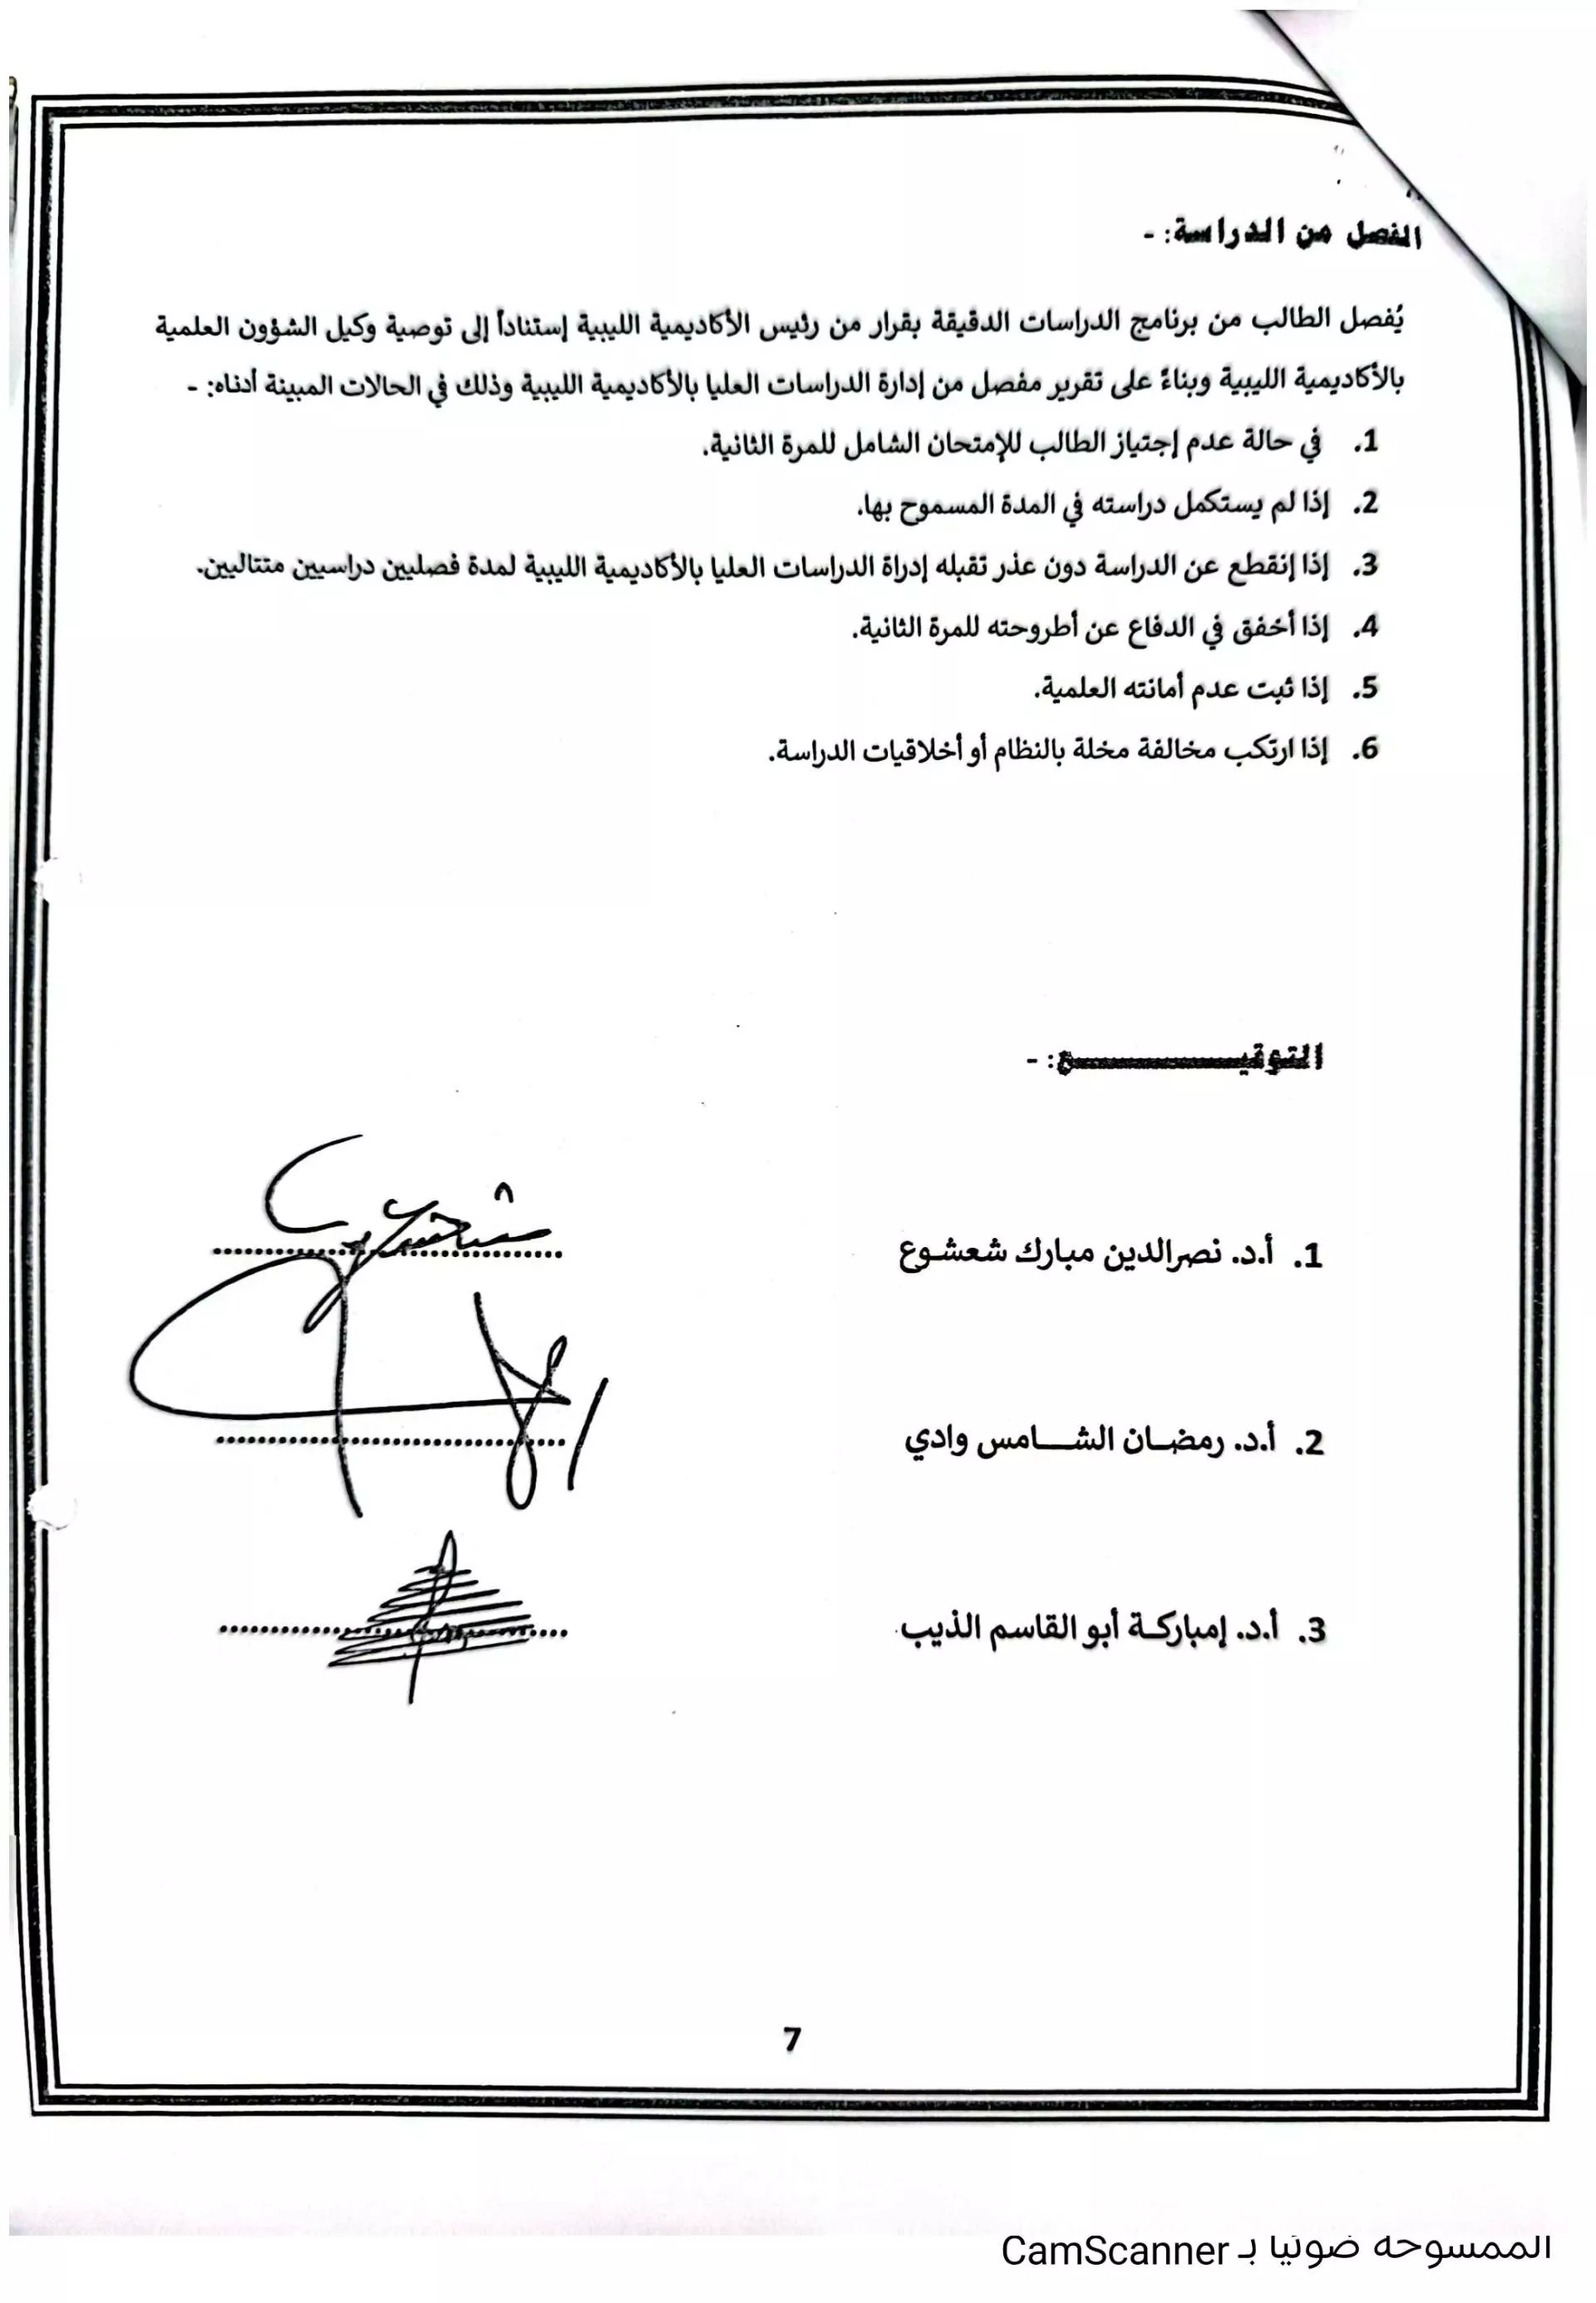 الفصل من الدراسة: -
يُفصل الطالب من برنامج الدراسات الدقيقة بقرار من رئيس الأكاديمية الليبية إستناداً إلى توصية وكيل الشؤون العلمية
بالأكاديمية الليبية وبناءً على تقرير مفصل من إدارة الدراسات العليا بالأكاديمية الليبية وذلك في الحالات المبينة أدناه: -
1. في حالة عدم إجتياز الطالب للإمتحان الشامل للمرة الثانية.
2. إذا لم يستكمل دراسته في المدة المسموح بها.
3. إذا إنقطع عن الدراسة دون عذر تقبله إدراة الدراسات العليا بالأكاديمية الليبية لمدة فصليين دراسيين متتاليين.
4. إذا أخفق في الدفاع عن أطروحته للمرة الثانية.
5. إذا ثبت عدم أمانته العلمية.
6. إذا ارتكب مخالفة مخلة بالنظام أو أخلاقيات الدراسة.
التوقيـــــــــــــع: -
1. أ.د. نصرالدين مبارك شعشـوع ..........................
2. أ.د. رمضـان الشـــامس وادي ..........................
3. أ.د. إمباركـة أبو القاسم الذيب ..........................
7
الممسوحة ضوئيا بـ CamScanner